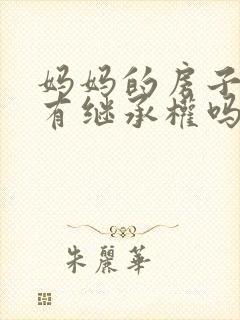 妈妈的房子
有继承權吗
朱麗華